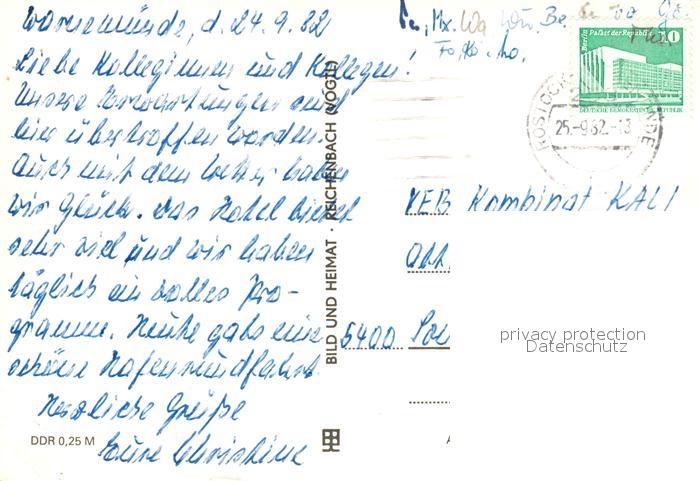 Warnemünde, d. 24.9.82
Liebe Kolleginnen und Kollegen!
Unsere Erwartungen sind
hier übertroffen worden.
Auch mit dem Wetter haben
wir Glück. Das Hotel bietet
sehr viel und wir haben
täglich ein volles Pro-
gramm. Heute gabs eine
schöne Hafenrundfahrt.
Herzliche Grüße
Eure Christine
DDR 0,25 M
BILD UND HEIMAT · REICHENBACH (VOGTL)
Berlin Palast der Republik
10
DEUTSCHE DEMOKRATISCHE REPUBLIK
25.-9.82.-13
VEB Kombinat KALI
5400
privacy protection
Datenschutz